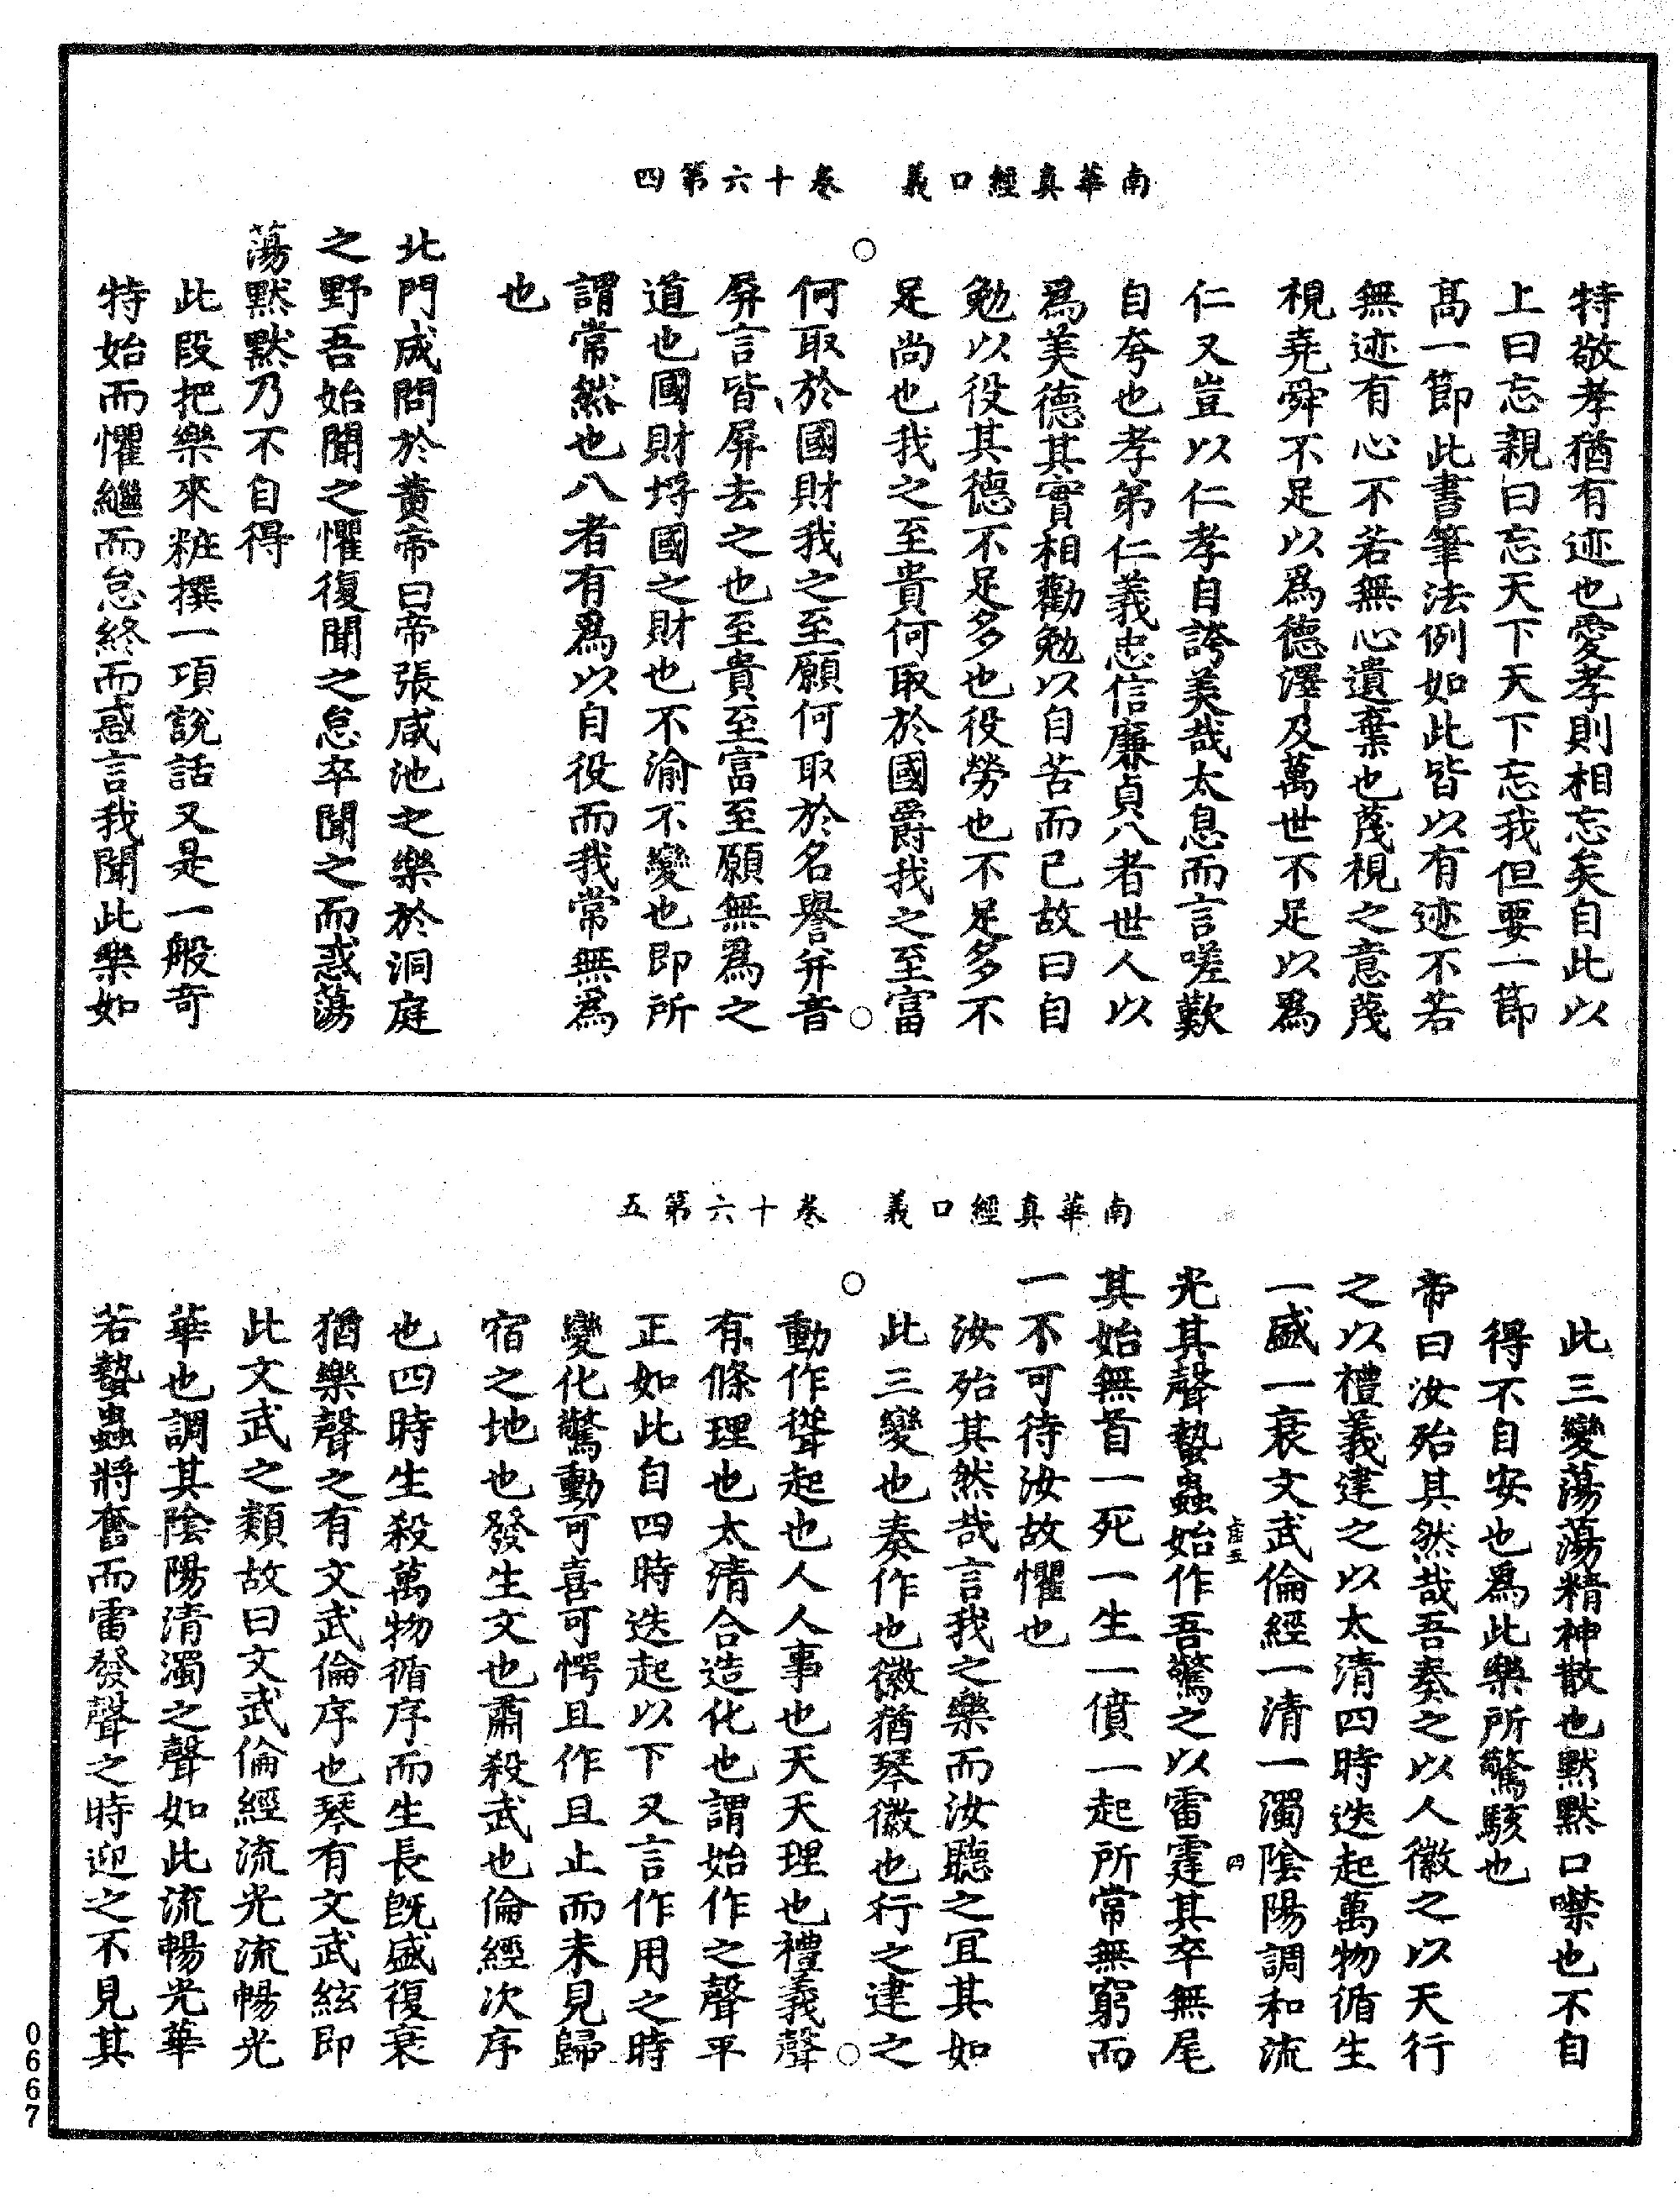 南華真經口義　卷十六第四
特敬孝猶有迹也愛孝則相忘矣自此以
上曰忘親曰忘天下天下忘我但要一節
高一節此書筆法例如此皆以有迹不若
無迹有心不若無心遺棄也蔑視之意蔑
視堯舜不足以爲德澤及萬世不足以爲
仁又豈以仁孝自誇美哉太息而言嗟歎
自夸也孝弟仁義忠信廉貞八者世人以
爲美德其實相勸勉以自苦而已故曰自
勉以役其德不足多也役勞也不足多不
足尚也我之至貴何取於國爵我之至富
何取於國財我之至願何取於名譽并音
屏言皆屏去之也至貴至富至願無爲之
道也國財埒國之財也不渝不變也即所
謂常然也八者有爲以自役而我常無爲
也
北門成問於黃帝曰帝張咸池之樂於洞庭
之野吾始聞之懼復聞之怠卒聞之而惑蕩
蕩默默乃不自得
此段把樂來粧撰一項說話又是一般奇
特始而懼繼而怠終而惑言我聞此樂如
南華真經口義　卷十六第五
此三變蕩蕩精神散也默默口噤也不自
得不自安也爲此樂所驚駭也
帝曰汝殆其然哉吾奏之以人徽之以天行
之以禮義建之以太清四時迭起萬物循生
一盛一衰文武倫經一清一濁陰陽調和流
光其聲蟄蟲始作吾驚之以雷霆其卒無尾
其始無首一死一生一僨一起所常無窮而
一不可待汝故懼也
汝殆其然哉言我之樂而汝聽之宜其如
此三變也奏作也徽猶琴徽也行之建之
動作聳起也人人事也天天理也禮義聲
有條理也太清合造化也謂始作之聲平
正如此自四時迭起以下又言作用之時
變化驚動可喜可愕且作且止而未見歸
宿之地也發生文也肅殺武也倫經次序
也四時生殺萬物循序而生長旣盛復衰
猶樂聲之有文武倫序也琴有文武絃即
此文武之類故曰文武倫經流光流暢光
華也調其陰陽清濁之聲如此流暢光華
若蟄蟲將奮而雷發聲之時迎之不見其
0667